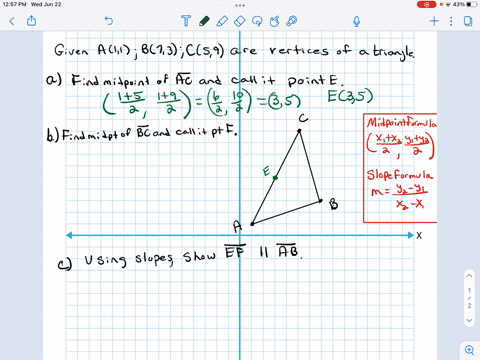 12:57 PM Wed Jun 22
43%
Given A(1,1); B(7,3); C(5,9) are vertices of a triangle
a) Find midpoint of AC and call it point E.
(1+5/2, 1+9/2) = (6/2, 10/2) = (3,5) E(3,5)
b) Find midpt of BC and call it pt F.
C
E
A
B
x
Midpoint Formula
(x₁+x₂/2, y₁+y₂/2)
Slope Formula
m = y₂-y₁/x₂-x
c) Using slopes, show EF || AB.
1
2